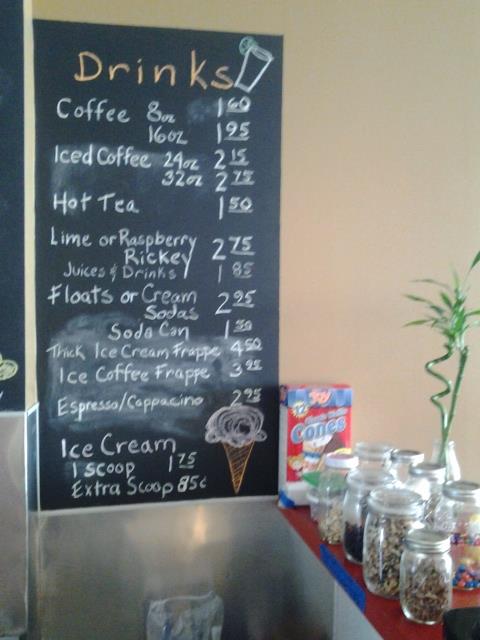 Drinks
Coffee 8oz 1 60
16oz 1 95
Iced Coffee 24oz 2 15
32oz 2 75
Hot Tea 1 50
Lime or Raspberry
Rickey 2 75
Juices & Drinks 1 85
Floats or Cream
Sodas 2 95
Soda Can 1 50
Thick Ice Cream Frappe 4 50
Ice Coffee Frappe 3 95
Espresso/Cappacino 2 95
Ice Cream
1 scoop 1 75
Extra Scoop 85¢
Joy
12
Cones